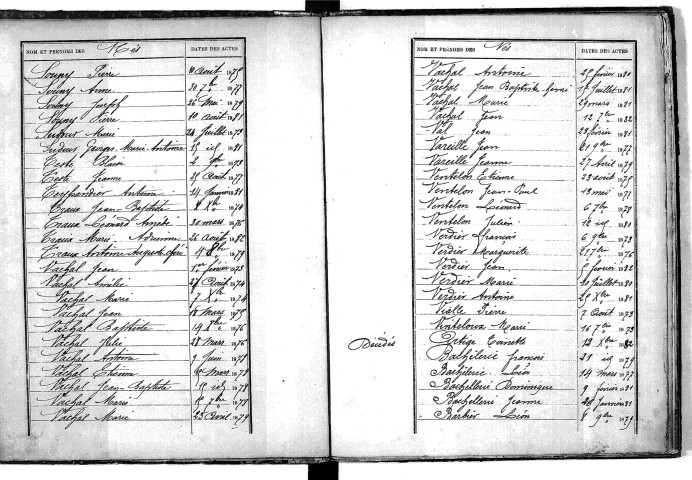 NOM ET PRÉNOMS DES Nés DATES DES ACTES
Souny Pierre 11 Août 1875
Souny Anne 30 7bre 1877
Souny Joseph 26 Mai 1879
Souny Pierre 10 Août 1881
Marie 24 Juillet 1873
Georges Marie Antoine 15 id 1881
2 1873
Jeanne 25 Août 1877
Teyssandier Antoine 14 Janvier 1881
Traux Jean Baptiste 1874
Traux Léonard Amédé 30 mars 1876
Traux Marie Adrienne 26 Août 1882
Traux Antoine Auguste 8bre 1879
Vachal Jean 1er février 1873
Vachal Amélie 27 1874
Vachal Marie 7 Xbre 1874
Vachal Jean 18 Mars 1875
Vachal Baptiste 14 1876
Vachal 28 Mars 1876
Vachal Antoine 9 Juin 1878
Vachal Etienne Mars 1878
Vachal Jean Baptiste id 1878
Vachal Marie 7bre 1878
Vachal Marie 25 Avril 1879
NOM ET PRÉNOMS DES Nés DATES DES ACTES
Vachal Antoine 25 février 1881
Vachal Jean Baptiste Juillet 1881
Vachal Marie 29 mars 1881
Vachal Jean 12 7bre 1882
Val Jean 28 février 1881
Vareille Jean 21 9bre 1877
Vareille Jeanne 27 Avril 1879
Ventelon Etienne 23 août 1875
Ventelon Jean Paul 13 mai 1877
Ventelon Léonard 6 7bre 1878
Ventelon Julien 12 id 1881
Verdier François 6 9bre 1873
Verdier Marguerite 21 7bre 1876
Verdier Jean 5 février 1882
Verdier Marie 30 Juillet 1880
Verdier Antoine 25 Xbre 1881
Vialle Pierre 7 Août 1873
Marie 16 7bre 1873
Décédés
Toinette 13 Xbre 1882
Bachèlerie François 21 id 1879
Bachèlerie Léon 14 mars 1877
Bachellerie Dominique 9 février 1881
Bachellerie Jeanne 28 Janvier 1881
Barbier Léon 8 9bre 1879